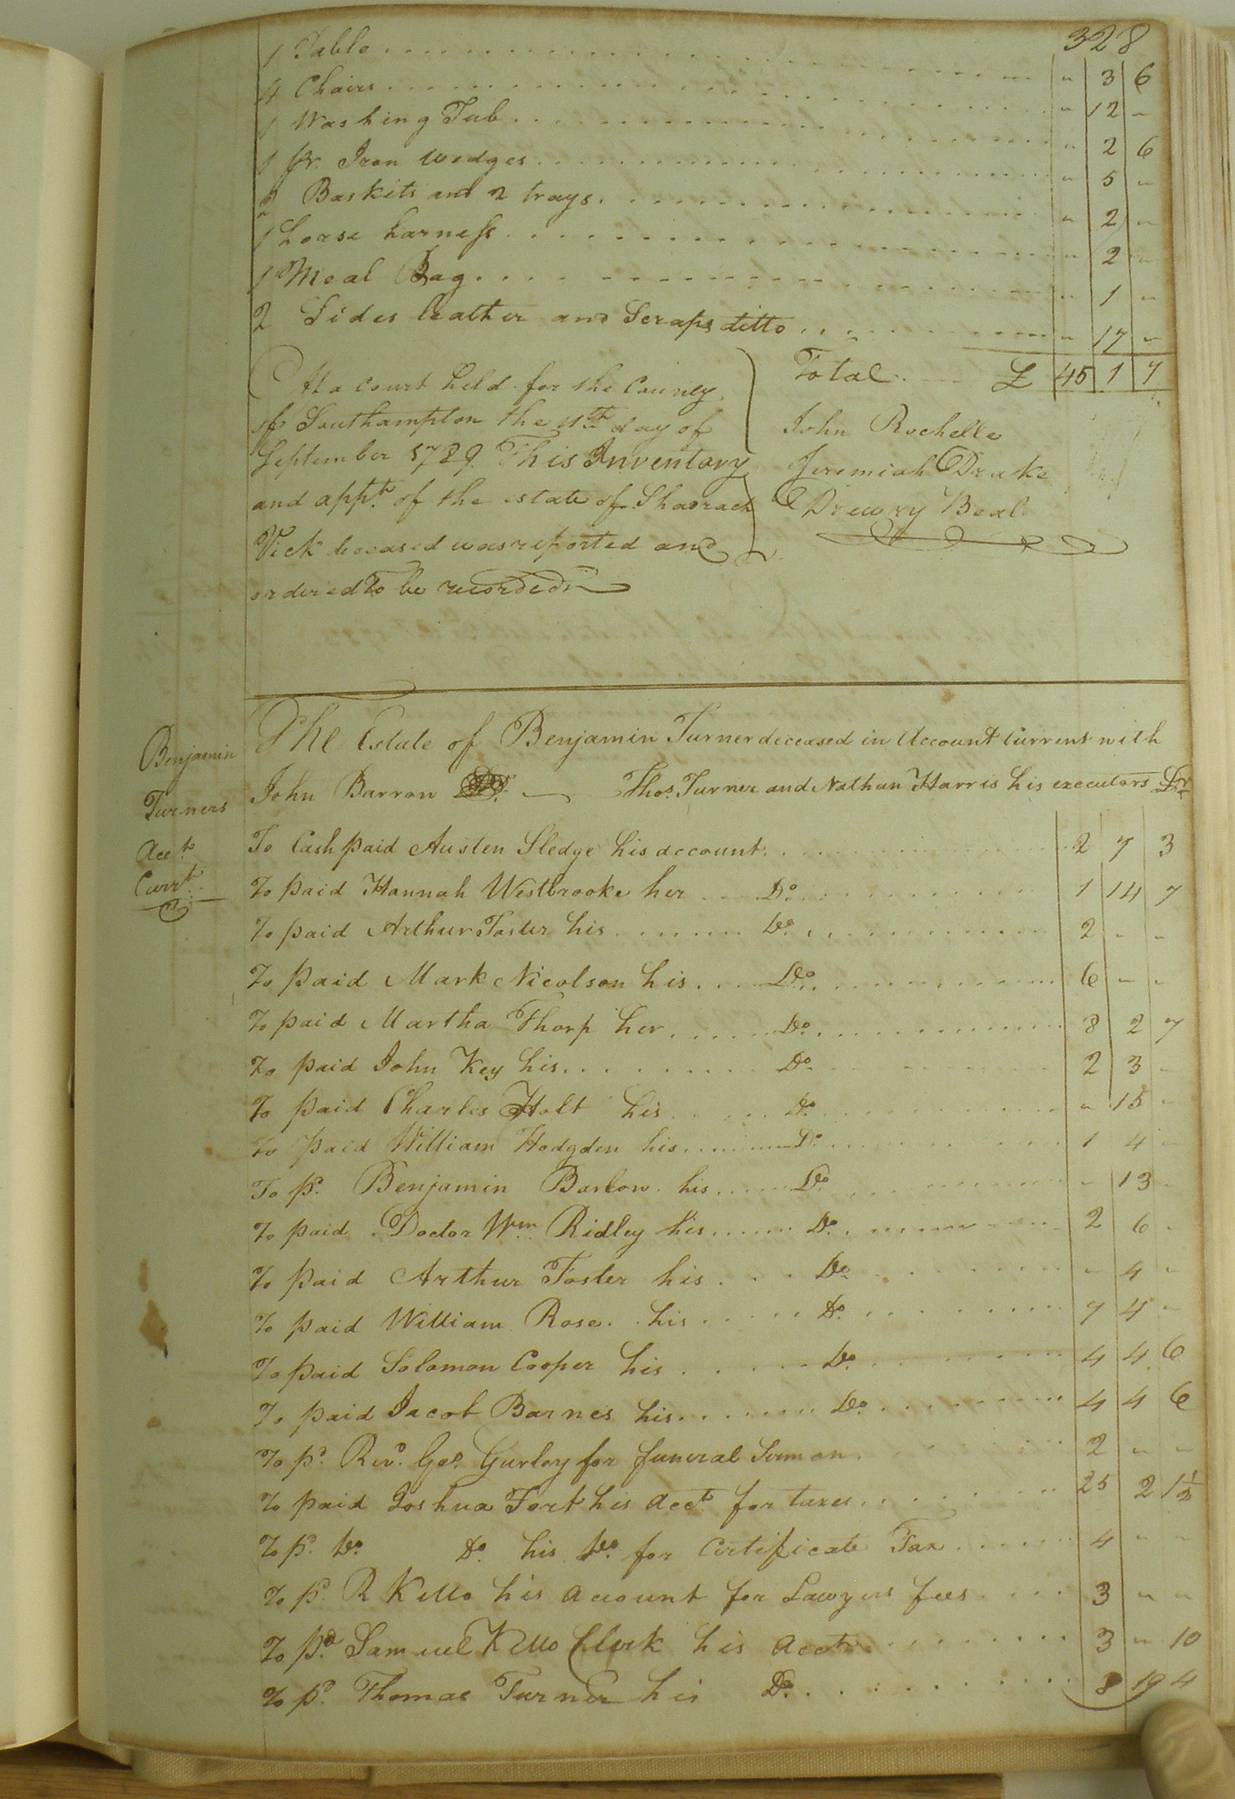 328
1 Table - 3 6
4 Chairs - 12 -
1 Washing Tub - 2 6
1 pr. Iron wedges - 5 -
2 Baskits and 2 trays - 2 -
1 horse harness - 2 -
1 Meal Bag - 1 -
2 Sides leather and Scraps ditto - 17 -
Total £ 45 1 7
At a court held for the County
of Southampton the 11th day of
September 1789. This Inventory
and appt. of the estate of Shadrach
Vick deceased was reported and
ordered to be recorded
John Rochelle
Jeremiah Drake
Drewry Beal
Benjamin
Turners
Acct.
Currt.
The Estate of Benjamin Turner deceased in Account Current with
John Barron Thos. Turner and Nathan Harris his executors Dr
To Cash paid Austen Sledge his account 2 7 3
To paid Hannah Westbrooke her Do. 1 14 7
To paid Arthur Foster his Do. 2 - -
To paid Mark Nicolson his Do. 6 - -
To paid Martha Thorp her Do. 8 2 7
To paid John Key his Do. 2 3 -
To paid Charles Holt his Do. - 15 -
To paid William Hodgden his Do. 1 4 -
To pd. Benjamin Barlow his Do. - 13 -
To paid Doctor Wm Ridley his Do. 2 6 -
To paid Arthur Foster his Do. - 4 -
To paid William Rose his Do. 7 4 -
To paid Solomon Cooper his Do. 4 4 6
To paid Jacob Barnes his Do. 4 4 6
To pd. Revd. Geo. Gurley for funeral Sermon 2 - -
To paid Joshua Fort his Acct for taxes 25 2 1½
To pd. Do. Do. his Do. for Certificate Tax 4 - -
To pd. R Kello his account for Lawyers fees 3 - -
To pd. Samuel Kello Clerk his Acct. 3 - 10
To pd. Thomas Turner his Do. 8 19 4